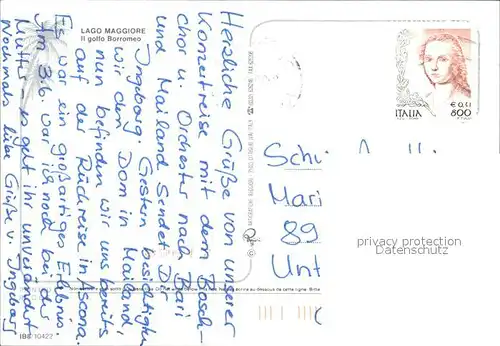 LAGO MAGGIORE
Il golfo Borromeo
Herzliche Grüße von unserer
Konzertreise mit dem Bosch-
chor u. Orchester nach Bari
und Mailand sendet Dir
Ingeborg. Gestern besichtigten
wir den Dom in Mailand,
nun befinden wir uns bereits
auf der Rückreise in Ascona.
Es war ein großartiges Erlebnis.
Am 3.6. war ich noch bei der
Mutter, es geht ihr unverändert
Nochmals liebe Grüße v. Ingeborg
IBB 10422
€ 0,41
ITALIA 800
Schi
Mari
89
Unt
privacy protection
Datenschutz